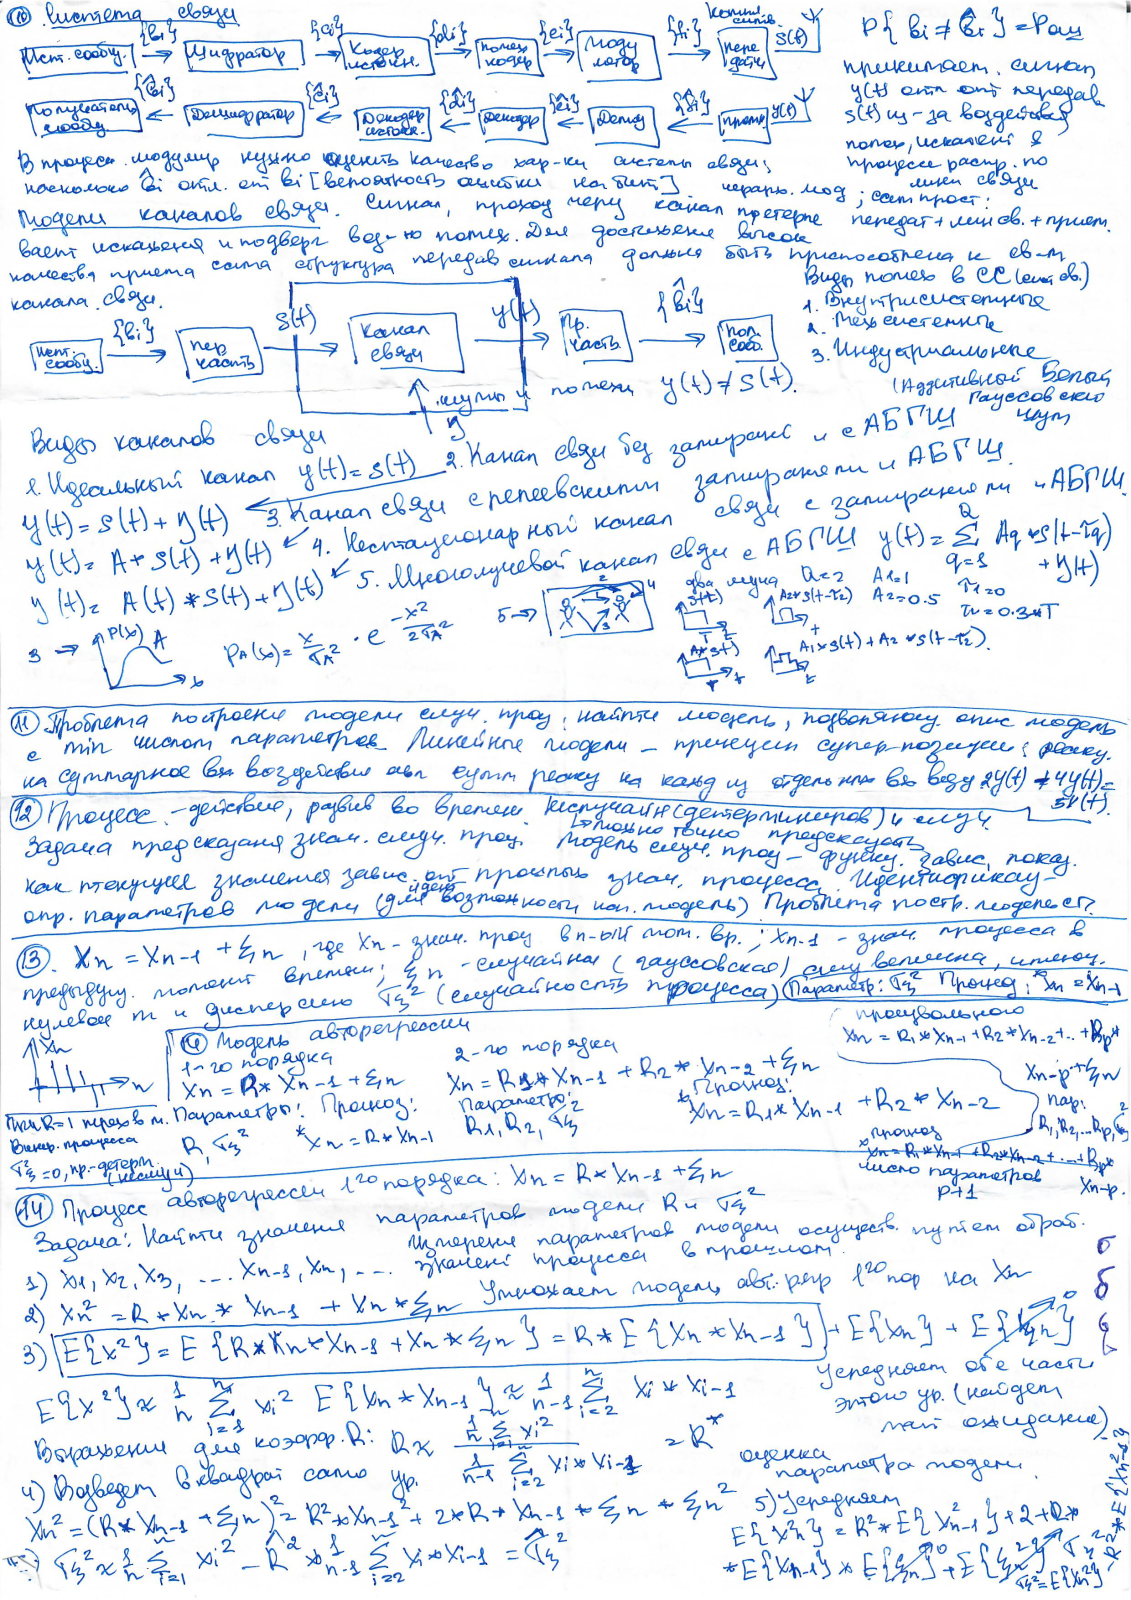 10 Система связи
Ист. сообщ. {bi} Шифратор {ci} Кодер источн. {di} помех. кодер {ei} Моду лятор {fi} пере датч S(t)
P{bi ≠ b̂i} = Pош
Получатель сообщ. {b̂i} Дешифратор {ĉi} Декодер источн. {d̂i} Декодер {êi} Демод {f̂i} прием. y(t)
принимает. сигнал
y(t) отл от передав
s(t) из-за воздействия
помех, искажений в
процессе распр. по
линии связи
В процесс. модулир нужно оценить качество хар-ки системы связи;
насколько b̂i отл. от bi [вероятность ошибки на бит]
Модели каналов связи. Сигнал, проход через канал претерпе
передат + лин св. + прием.
вает искажения и подверг воз-ю помех. Для достижения высок
качества приема сама структура передав сигнала должна быть приспособлена к св-м
канала связи.
Виды помех в СС (лин св.)
1. Внутрисистемные
2. Межсистемные
3. Индустриальные
ист. сообщ. {bi} пер часть S(t) Канал связи y(t) Пр. часть {b̂i} пол. сооб.
шумы и помехи y(t) ≠ S(t).
(Аддитивный Белый
Гауссовский
шум
Виды каналов связи
1. Идеальный канал y(t) = s(t) 2. Канал связи без замираний и с АБГШ
y(t) = s(t) + η(t) 3. Канал связи с релеевскими замираниями и АБГШ.
y(t) = A * s(t) + η(t) 4. Нестационарный канал связи с замираниями и АБГШ.
y(t) = A(t) * s(t) + η(t) 5. Многолучевой канал связи с АБГШ y(t) = Σ Aq * s(t-τq) + η(t)
q=1 Q
два луча Q=2 A1=1 τ1=0
A2=0.5 τ2=0.3*T
s(t) A2*s(t-τ2)
A*s(t) A1*s(t) + A2*s(t-τ2).
3 → P(x) A x
PA(x) = x/σA² · e^(-x²/2σA²)
5 →
11 Проблема построения модели случ. проц. найти модель, позволяющ. опис модель
с min числом параметров Линейные модели – принцип супер-позиции: реакц.
на суммарное вх воздействие явл сумм реакц на кажд из отдельных вх возд 2y(t) + 4y(t) =
12 Процесс – действие, развив во времени. Неслучайн (детерминиров) и случ.
можно точно предсказать
Задача предсказания знач. случ. проц. Модель случ. проц – функц. завис, показ.
как текущее значения завис. от прошлых знач. процесса. Идентификац –
опр. параметров модели (для возможности исп. модель) Проблема постр. модели ст?
13. Xn = Xn-1 + ξn, где Xn – знач. проц в n-ый мом. вр.; Xn-1 – знач. процесса в
предыдущ. момент времени; ξn – случайная (гауссовская) случ величина, имеющ.
нулевое m и дисперсию σξ² (случайность процесса) Параметр: σξ² Прогноз: *Xn = Xn-1
Xn n
14 Модель авторегрессии
1-го порядка
Xn = R * Xn-1 + ξn
Параметры: Прогноз:
R, σξ² *Xn = R * Xn-1
2-го порядка
Xn = R1 * Xn-1 + R2 * Xn-2 + ξn
Параметр: Прогноз:
R1, R2, σξ² *Xn = R1 * Xn-1 + R2 * Xn-2
произвольного
Xn = R1 * Xn-1 + R2 * Xn-2 + .. + Rp *
Xn-p + ξn
пар:
R1, R2, ... Rp, σξ²
прогноз
*Xn = R1 * Xn-1 + R2 * Xn-2 + ... + Rp *
Xn-p.
число параметров
p+1
При R=1 перех в м.
Винер. процесса
σξ² = 0, пр-детерм.
(неслуч)
14 Процесс авторегрессии 1го порядка: Xn = R * Xn-1 + ξn
Задача: Найти значения параметров модели R и σξ²
Измерение параметров модели осуществ. путем обраб.
значений процесса в прошлом.
1) X1, X2, X3, ... Xn-1, Xn, ...
Умножаем модель авт. регр 1го пор на Xn
2) Xn² = R * Xn * Xn-1 + Xn * ξn
3) E{x²} = E{R * Xn * Xn-1 + Xn * ξn} = R * E{Xn * Xn-1} + E{Xn} + E{ξn} 0
Усредняем обе части
этого ур. (найдем
мат ожидание)
E{x²} ≈ 1/n Σ(i=1..n) xi² E{Xn * Xn-1} ≈ 1/n-1 Σ(i=2..n) xi * xi-1
Выражение для коэфф. R: R ≈ (1/n Σ(i=1..n) xi²) / (1/n-1 Σ(i=2..n) xi * xi-1) = R*
оценка
параметра модели.
4) Возведем в квадрат само ур.
Xn² = (R * Xn-1 + ξn)² = R² * Xn-1² + 2 * R * Xn-1 * ξn * ξn²
5) Усредняем
E{Xn²} = R² * E{Xn-1²} + 2 * R *
* E{Xn-1} * E{ξn} 0 + E{ξn²} σξ²
σξ² = E{Xn²} - R² * E{Xn-1²}
σξ² ≈ 1/n Σ(i=1..n) xi² - R̂² * 1/n-1 Σ(i=2..n) xi * xi-1 = σ̂ξ²